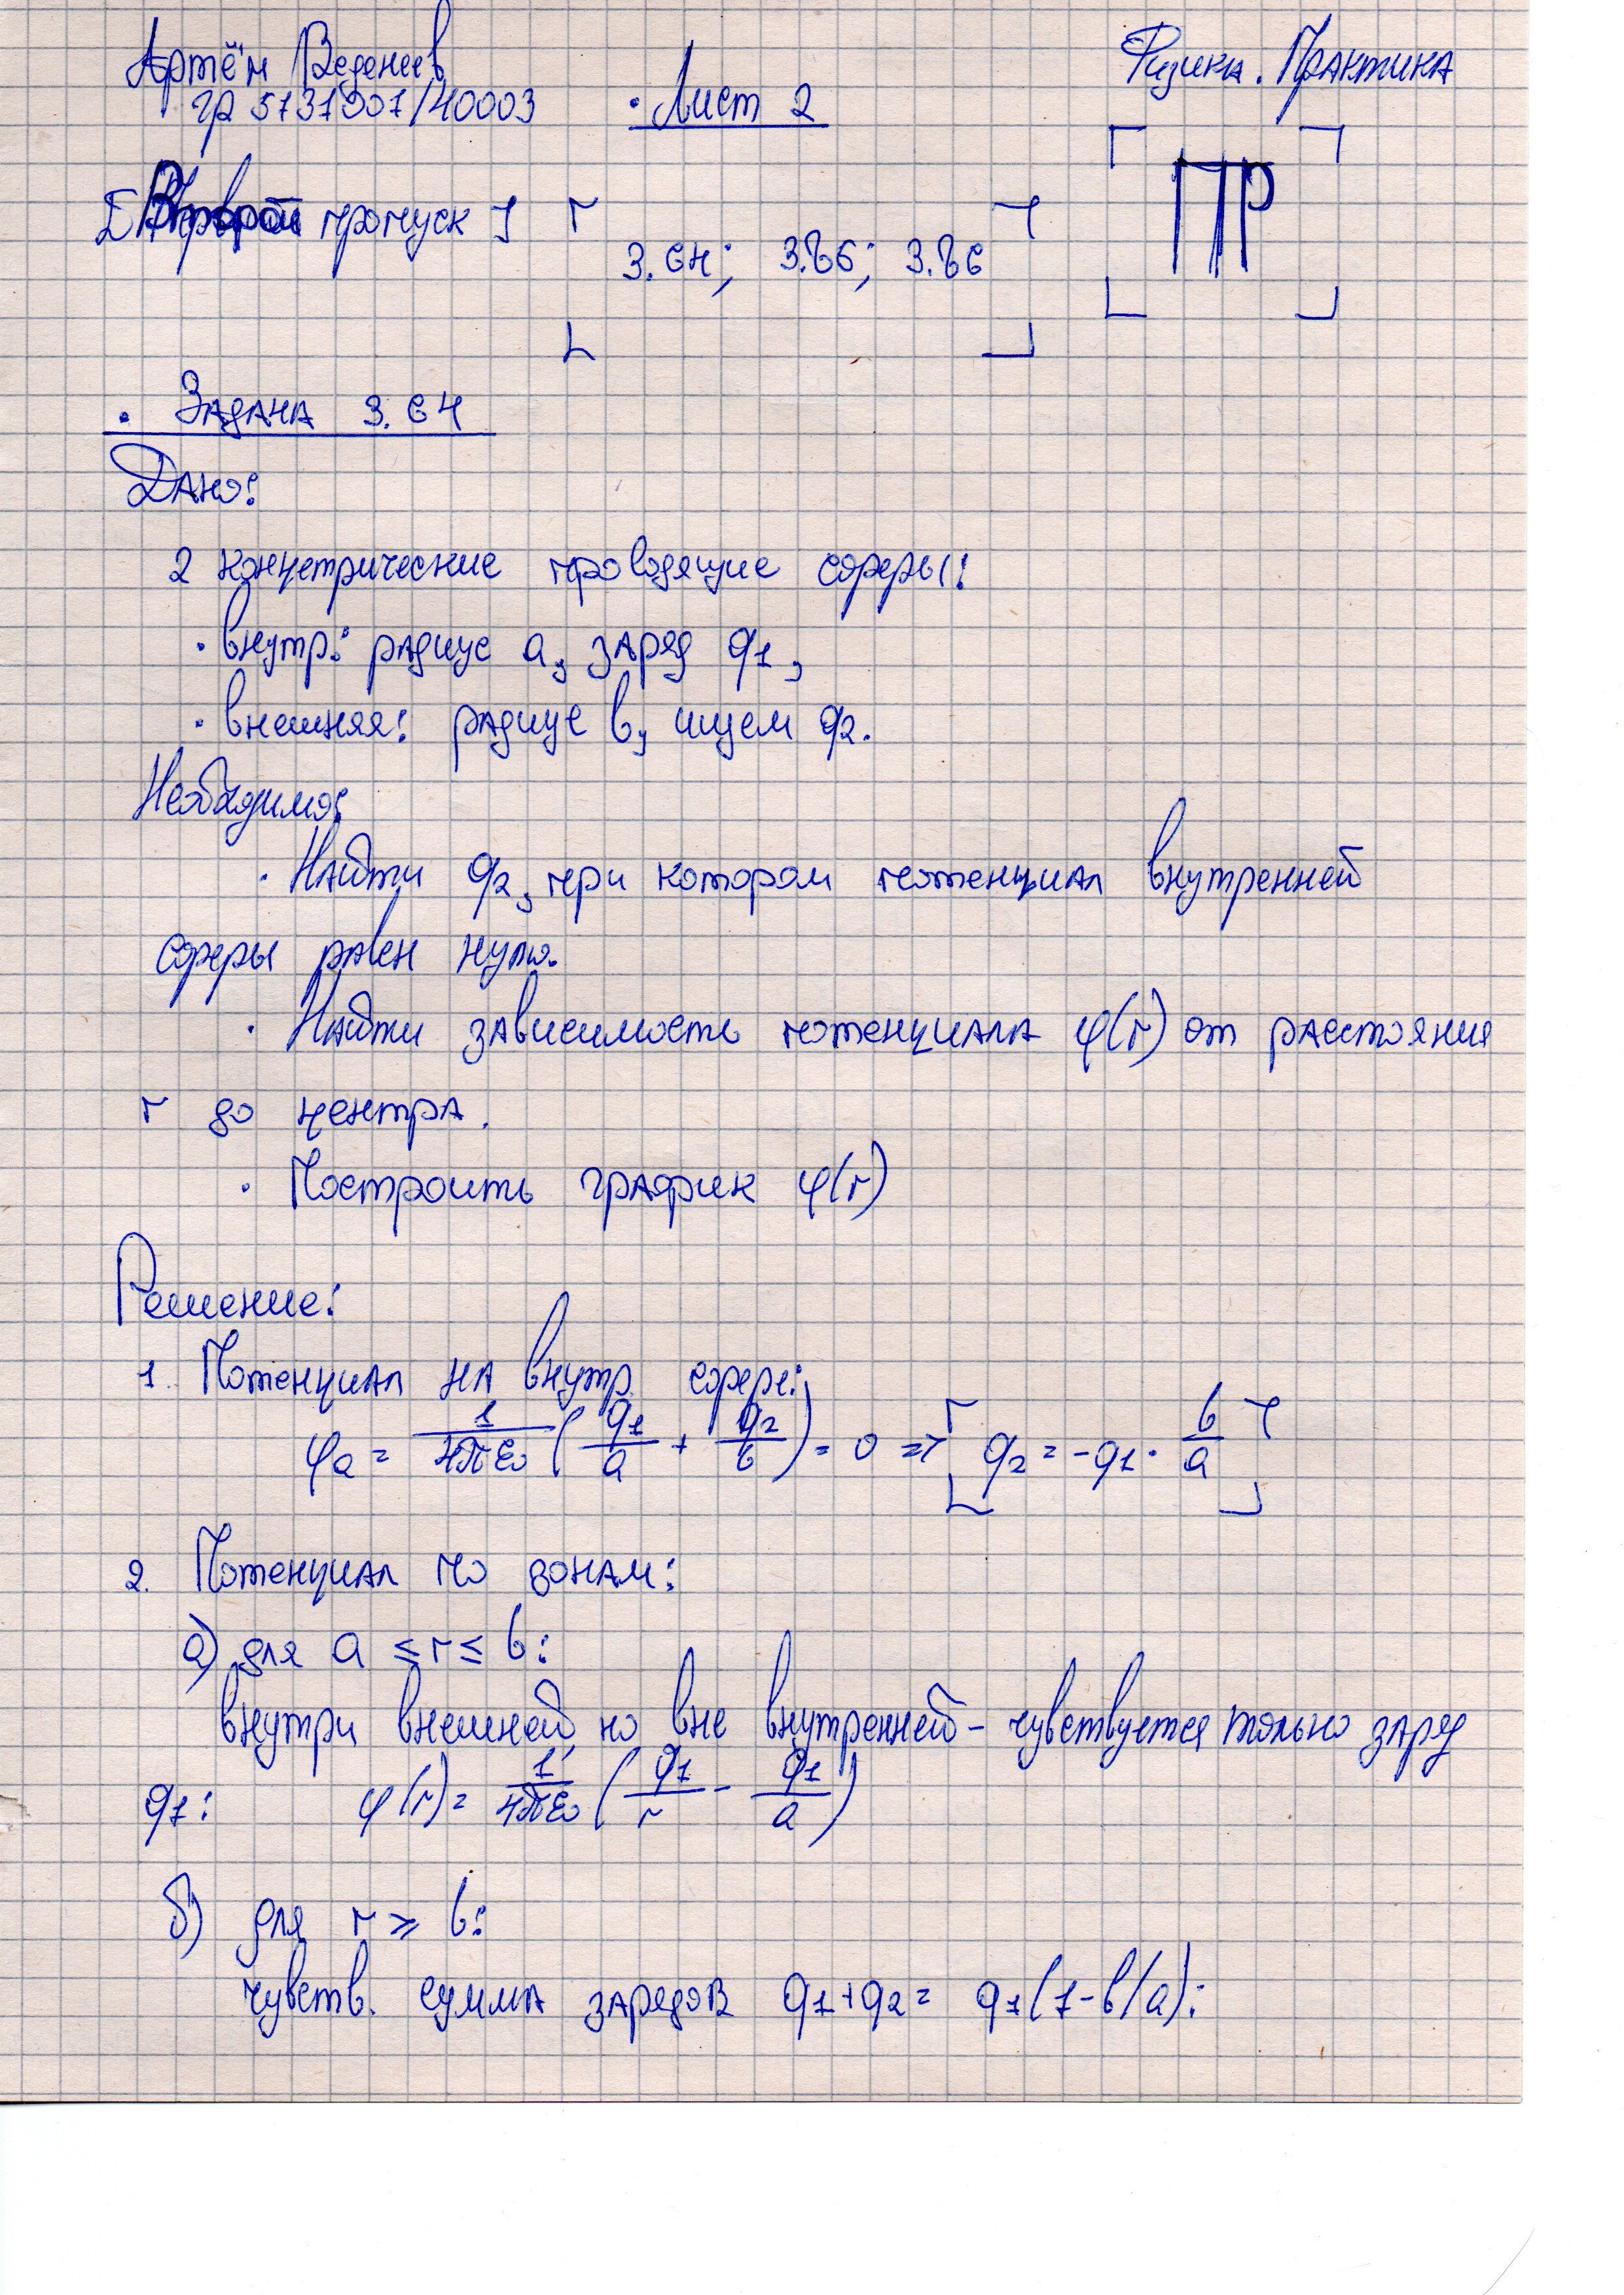 Артём Веденеев
Физика. Практика
гр 5131001/40003
• Лист 2
ПР
[Второй пропуск]
3.64; 3.76; 3.76
• Задача 3.64
Дано:
2 концетрические проводящие сферы:
• внутр: радиус a, заряд q₁,
• внешняя: радиус b, ищем q₂.
Необходимо:
• Найти q₂, при котором потенциал внутренней
сферы равен нулю.
• Найти зависимость потенциала φ(r) от расстояния
r до центра.
• Построить график φ(r)
Решение:
1. Потенциал на внутр сфере:
φa = 1/4πε₀ (q₁/a + q₂/b) = 0 => [q₂ = -q₁ · b/a]
2. Потенциал по зонам:
а) для a ≤ r ≤ b:
внутри внешней, но вне внутренней - чувствуется только заряд
q₁: φ(r) = 1/4πε₀ (q₁/r - q₁/a)
б) для r ≥ b:
чувств. сумма зарядов q₁+q₂ = q₁(1-b/a):